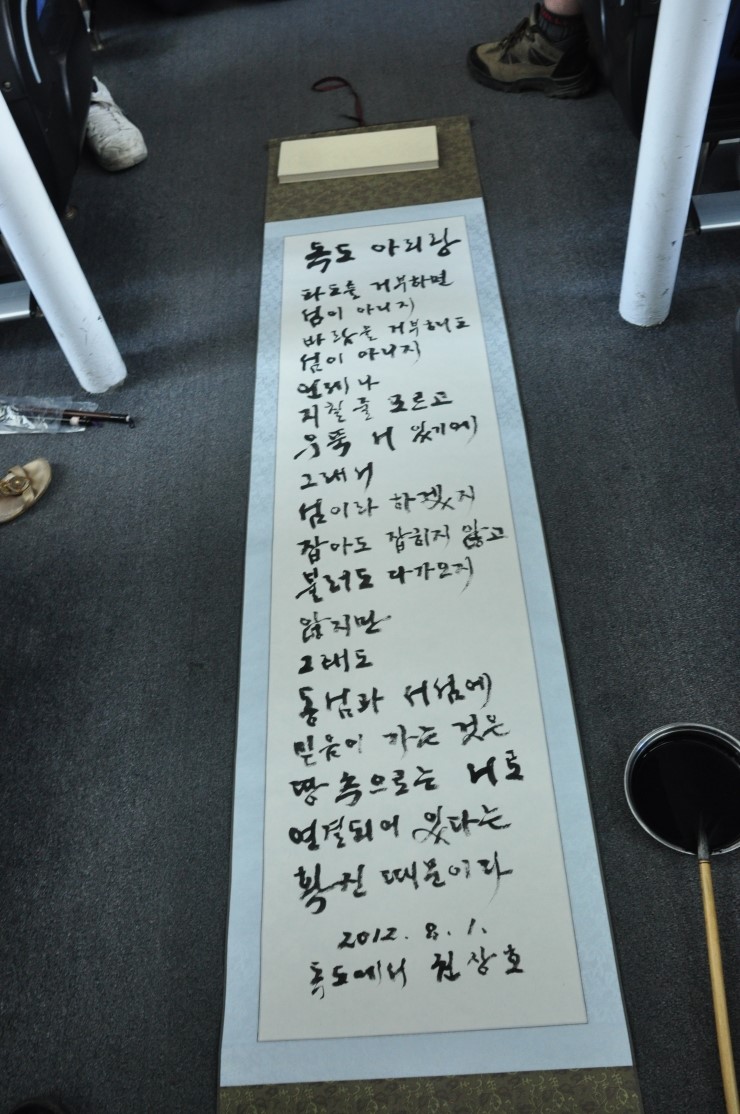 독도 아리랑
파도를 거부하면
섬이 아니지
바람을 거부해도
섬이 아니지
언제나
지칠 줄 모르고
우뚝 서 있기에
그래서
섬이라 하겠지
잡아도 잡히지 않고
불러도 다가오지
않지만
그래도
동섬과 서섬에
믿음이 가는 것은
땅 속으로는 서로
연결되어 있다는
확신 때문이라
2012. 8. 1.
독도에서 권상호